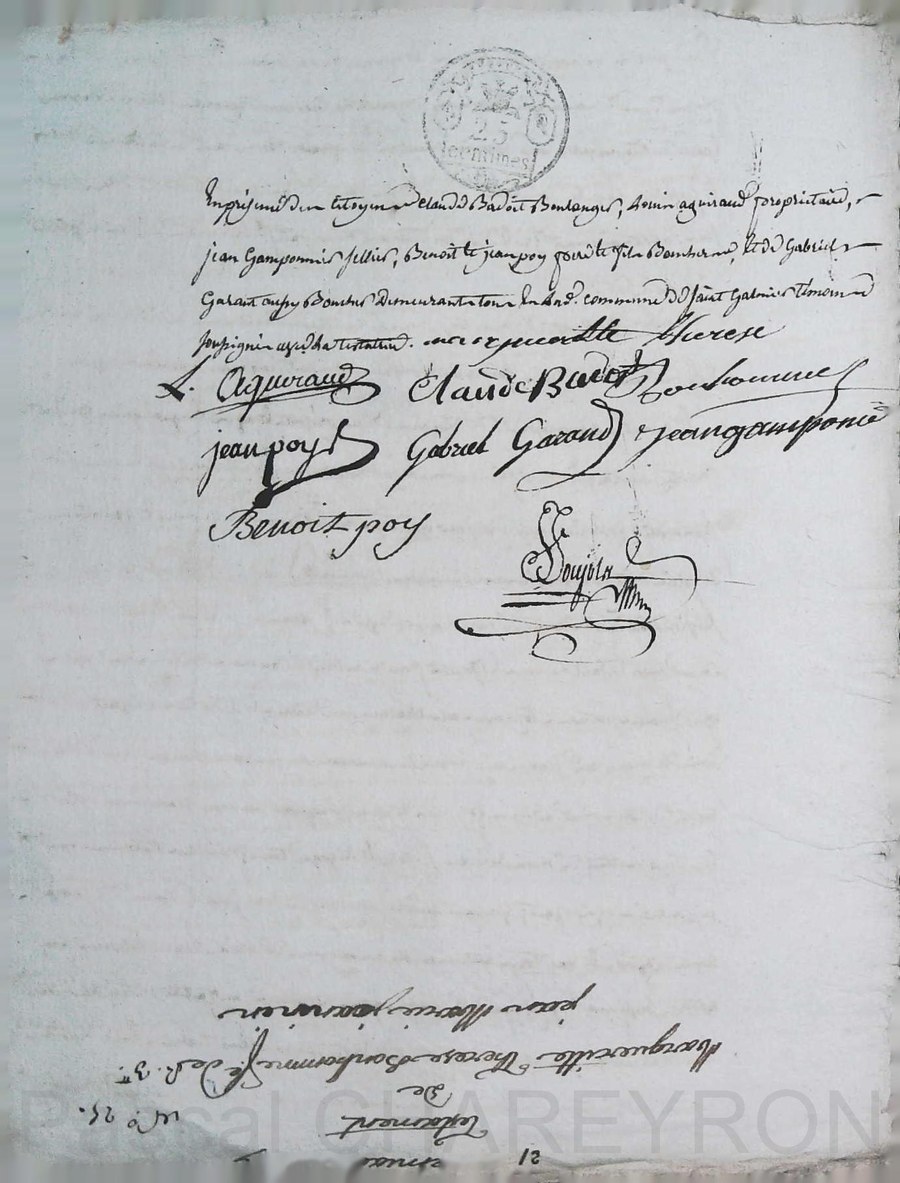 25
centimes
En présence des citoyens Claude Badoit Boulanger, Louis aguiraud propriétaire,
jean Gamponnier sellier, Benoit et jean poy père et fils Bouchers, et de Gabriel
Garant aussi Boucher demeurants tous en commune de Saint Galmier témoins
soussignés avec la testatrice. margueritte therese
L. aguiraud Claude Badoit Bonhomme
jean poy Gabriel Garand jean gamponie
Benoit poy
12
Testament
De
Margueritte Therese Bonhomme fe de
jean Marie jeannin
No 25.
Pascal CHAREYRON